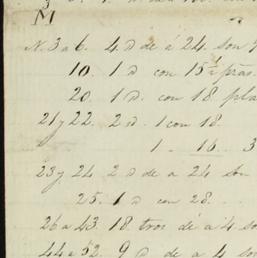 M
N. 3 a 6. 4 d de á 24. son
10. 1 d con 15 1/2
20. 1 d. con 18.
21 y 22. 2 d. 1 con 18.
1 - 16.
23 y 24 2 d de a 24 son
25. 1 d con 28.
26 a 43. 18. de a 4 so
44 a 52. 9 d. de a 4 son